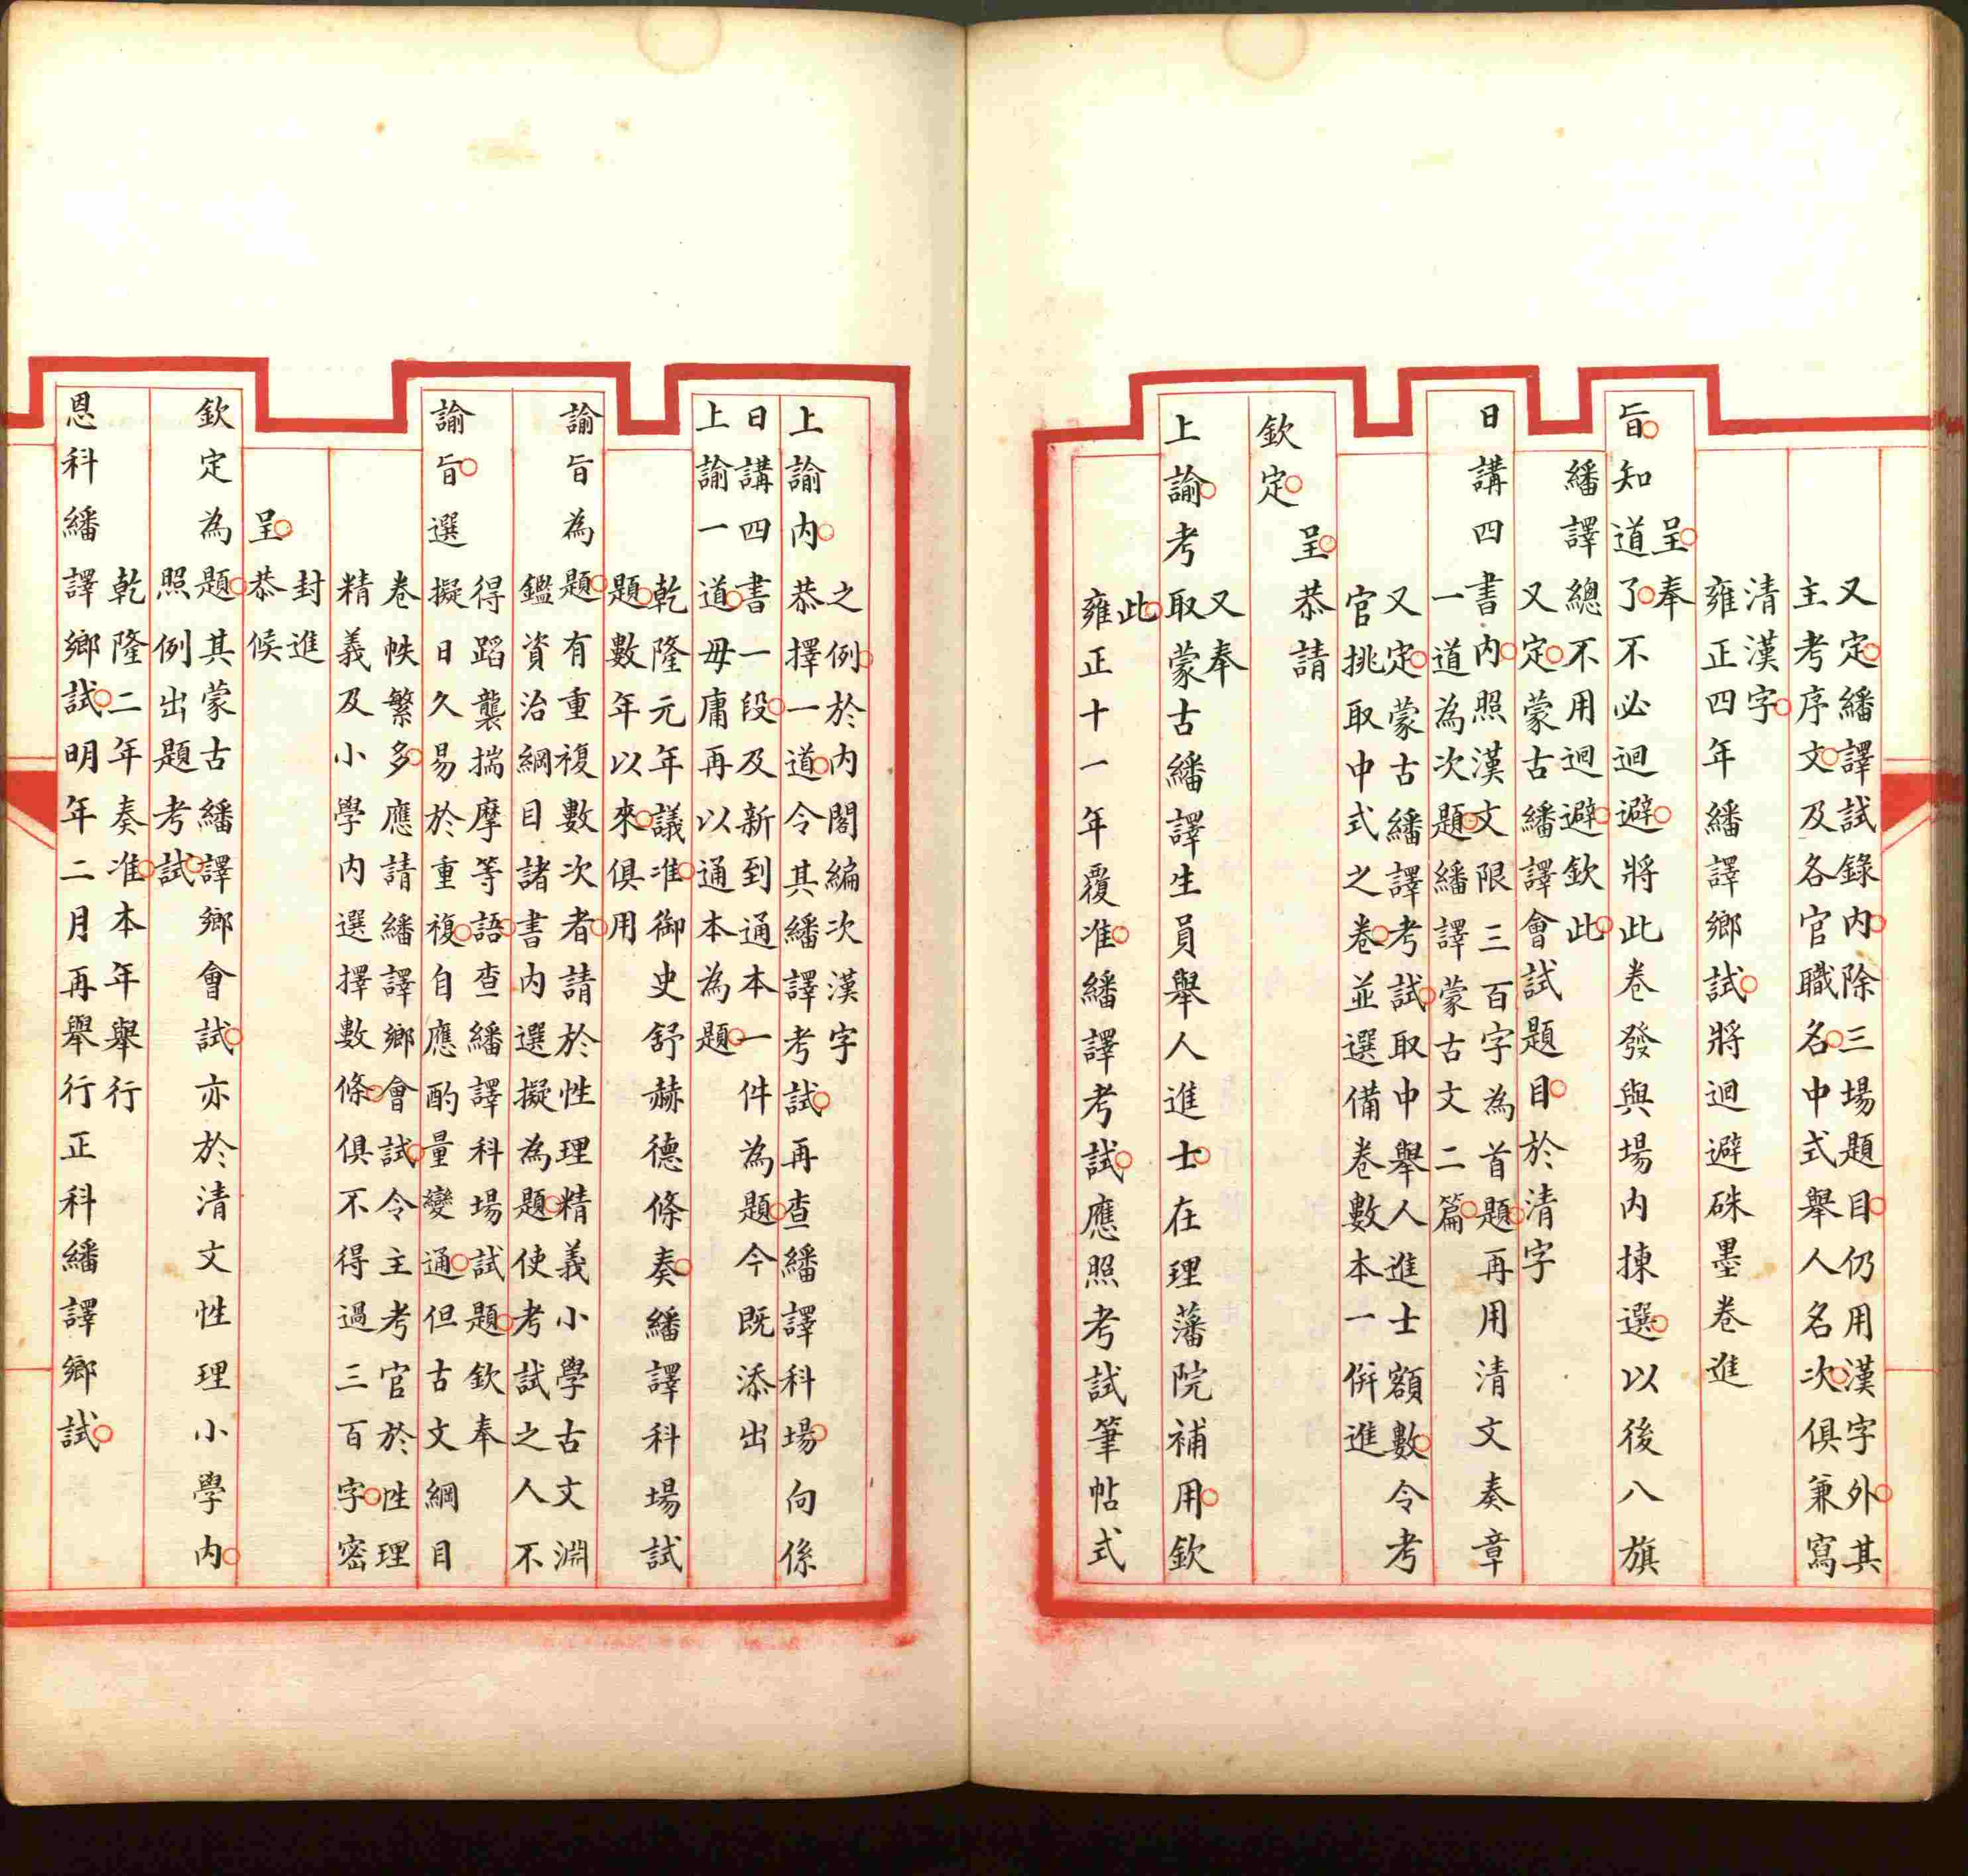 又定繙譯試錄內除三場題目仍用漢字外其
主考序文及各官職名中式舉人名次俱兼寫
清漢字
雍正四年繙譯鄉試將迴避硃墨卷進
呈奉
旨知道了不必迴避將此卷發與場內揀選以後八旗
繙譯總不用迴避欽此
又定蒙古繙譯會試題目於清字
日講四書內照漢文限三百字為首題再用清文奏章
一道為次題繙譯蒙古文二篇
又定蒙古繙譯考試取中舉人進士額數令考
官挑取中式之卷並選備卷數本一併進
呈恭請
欽定
又奉
上諭考取蒙古繙譯生員舉人進士在理藩院補用欽
此
雍正十一年覆准繙譯考試應照考試筆帖式
之例於內閣編次漢字
上諭內恭擇一道令其繙譯考試再查繙譯科場向係
日講四書一段及新到通本一件為題今既添出
上諭一道毋庸再以通本為題
乾隆元年議准御史舒赫德條奏繙譯科場試
題數年以來俱用
諭旨為題有重複數次者請於性理精義小學古文淵
鑑資治綱目諸書內選擬為題使考試之人不
得蹈襲揣摩等語查繙譯科場試題欽奉
諭旨選擬日久易於重複自應酌量變通但古文綱目
卷帙繁多應請繙譯鄉會試令主考官於性理
精義及小學內選擇數條俱不得過三百字密
封進
呈恭候
欽定為題其蒙古繙譯鄉會試亦於清文性理小學內
照例出題考試
乾隆二年奏准本年舉行
恩科繙譯鄉試明年二月再舉行正科繙譯鄉試